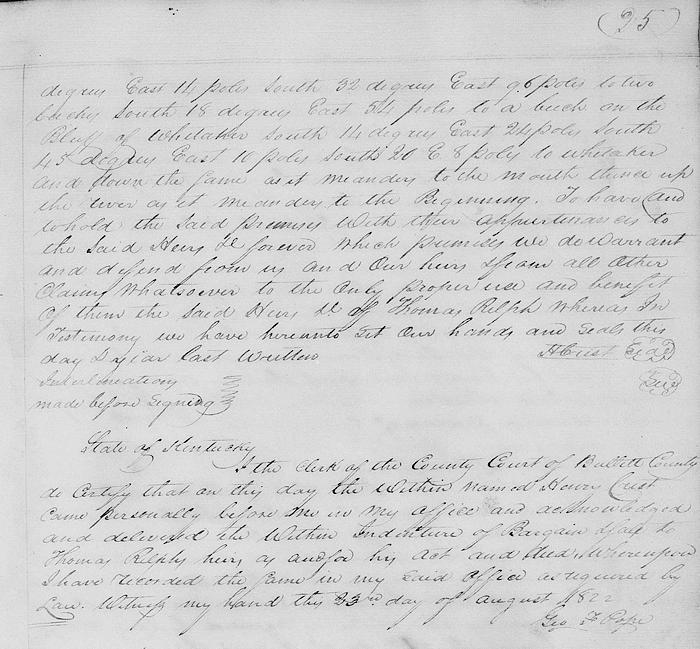 25
degrees East 14 poles South 32 degrees East 96 poles to two
beechs South 18 degrees East 54 poles to a beech on the
Bluff of Whitaker South 14 degrees East 24 poles South
45 degrees East 10 poles South 20 E 8 poles to whitaker
and down the same as it meanders to the mouth thence up
the river as it meanders to the Beginning. To have and
to hold the said premises With their appurtenances to
the said Heirs &c forever Which premises we do warrant
and defend from us and Our heirs & from all Other
Claims Whatsoever to the Only proper use and benefit
Of them the said Heirs &c of Thomas Relph Whereas In
Testimony we have hereunto set Our hands and seals this
day & year last Written H Crist Seal
Interlineations Seal
made before signing
State of Kentucky
I the Clerk of the County Court of Bullitt County
do Certify that on this day the within named Henry Crist
Came personally before me in my office and acknowledged
and delivered the Within Indenture of Bargain & sale to
Thomas Relphs heirs as and for his act and deed, Whereupon
I have recorded the same in my said Office as required by
Law. Witness my hand this 23rd day of august 1822
Geo F Pope